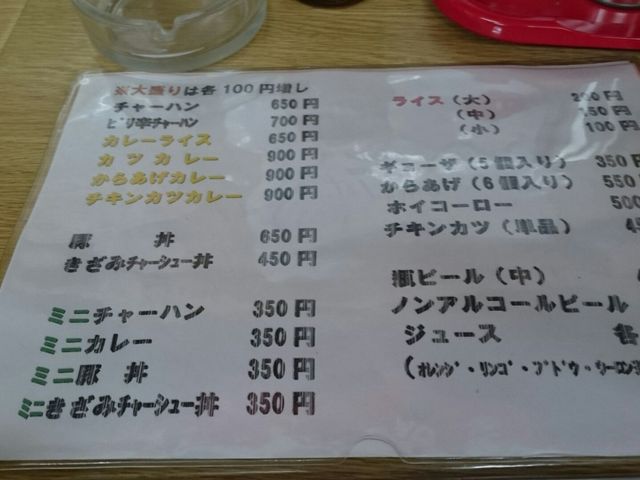 ※大盛りは各100円増し
チャーハン 650円
ピリ辛チャーハン 700円
カレーライス 650円
カツカレー 900円
からあげカレー 900円
チキンカツカレー 900円
豚 丼 650円
きざみチャーシュー丼 450円
ミニチャーハン 350円
ミニカレー 350円
ミニ豚 丼 350円
ミニきざみチャーシュー丼 350円
ライス（大） 200円
（中） 150円
（小） 100円
ギョーザ（5個入り） 350円
からあげ（6個入り） 550
ホイコーロー 500
チキンカツ（単品）
瓶ビール（中）
ノンアルコールビール
ジュース 各
（オレンジ・リンゴ・ブドウ・ウーロン